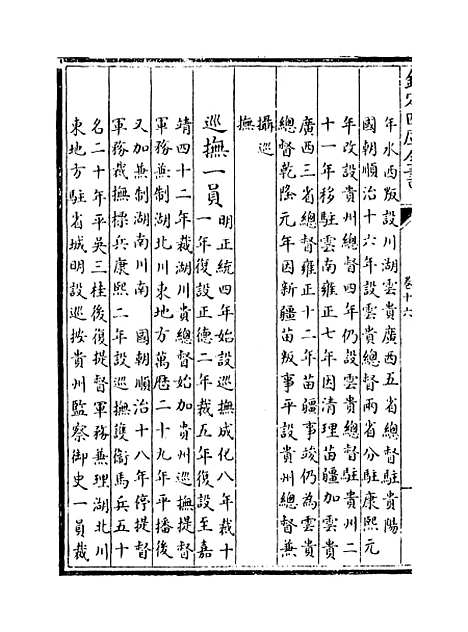 欽定四庫全書
卷十六
年水西叛設川湖雲貴廣西五省總督駐貴陽
國朝順治十六年設雲貴總督兩省分駐康熙元
年改設貴州總督四年仍設雲貴總督駐貴州二
十一年移駐雲南雍正七年因清理苗疆加雲貴
廣西三省總督雍正十二年苗疆事竣仍為雲貴
總督乾隆元年因新疆苗叛事平設貴州總督兼
攝巡
撫
巡撫一員 明正統四年始設巡撫成化八年裁十
一年復設正德二年裁五年復設至嘉
靖四十二年裁湖川貴總督始加貴州巡撫提督
軍務兼制湖北川東地方萬厯二十九年平播後
又加兼制湖南川南 國朝順治十八年停提督
軍務裁撫標兵康熙二年設巡撫護衛馬兵五十
名二十年平吳三桂後復提督軍務兼理湖北川
東地方駐省城明設巡按貴州監察御史一員裁